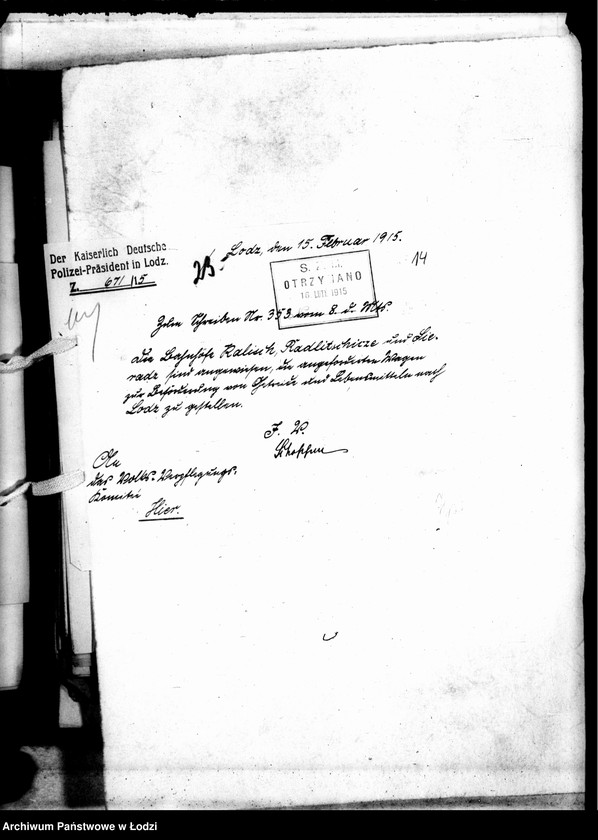 Der Kaiserlich Deutsche
Polizei-Präsident in Lodz.
Z. 671/15
Lodz, den 15. Februar 1915.
14
OTRZYMANO
16 LUTY 1915
Zum Schreiben Nr. 353 vom 8. d. Mts.
Die Bahnhöfe Kalisch, Radlitschicze und Sie-
radz sind angewiesen, die angeforderten Wagen
zur Beförderung von Getreide und Lebensmitteln nach
Lodz zu gestellen.
J. V.
An
das Volks-Verpflegungs-
Komitee
Hier.
Archiwum Państwowe w Łodzi